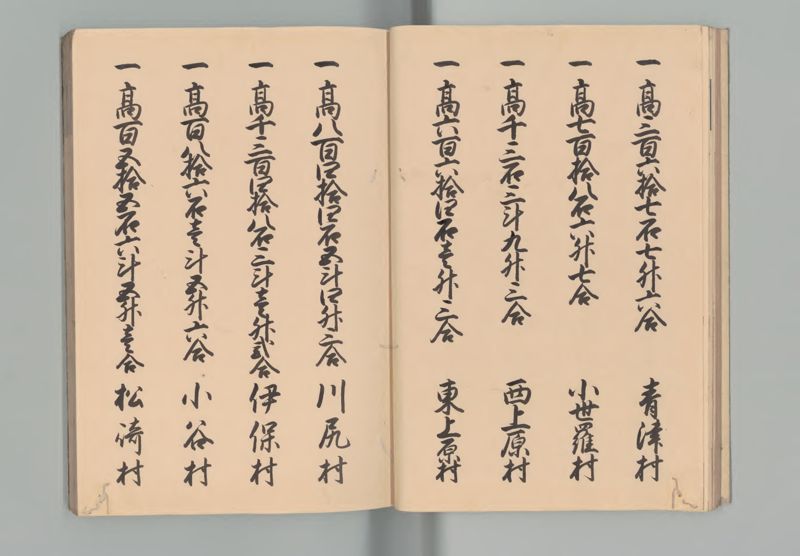 一高三百六拾七石七升六合 青津村
一高七百拾八石六升七合 小世羅村
一高千三石三斗九升三合 西上原村
一高六百六拾四石壱升三合 東上原村
一高八百四拾四石五斗四升六合 川尻村
一高千三百四拾八石二斗壱升弐合 伊保村
一高百八拾六石壱斗五升六合 小谷村
一高百五拾五石六斗五升壱合 松崎村